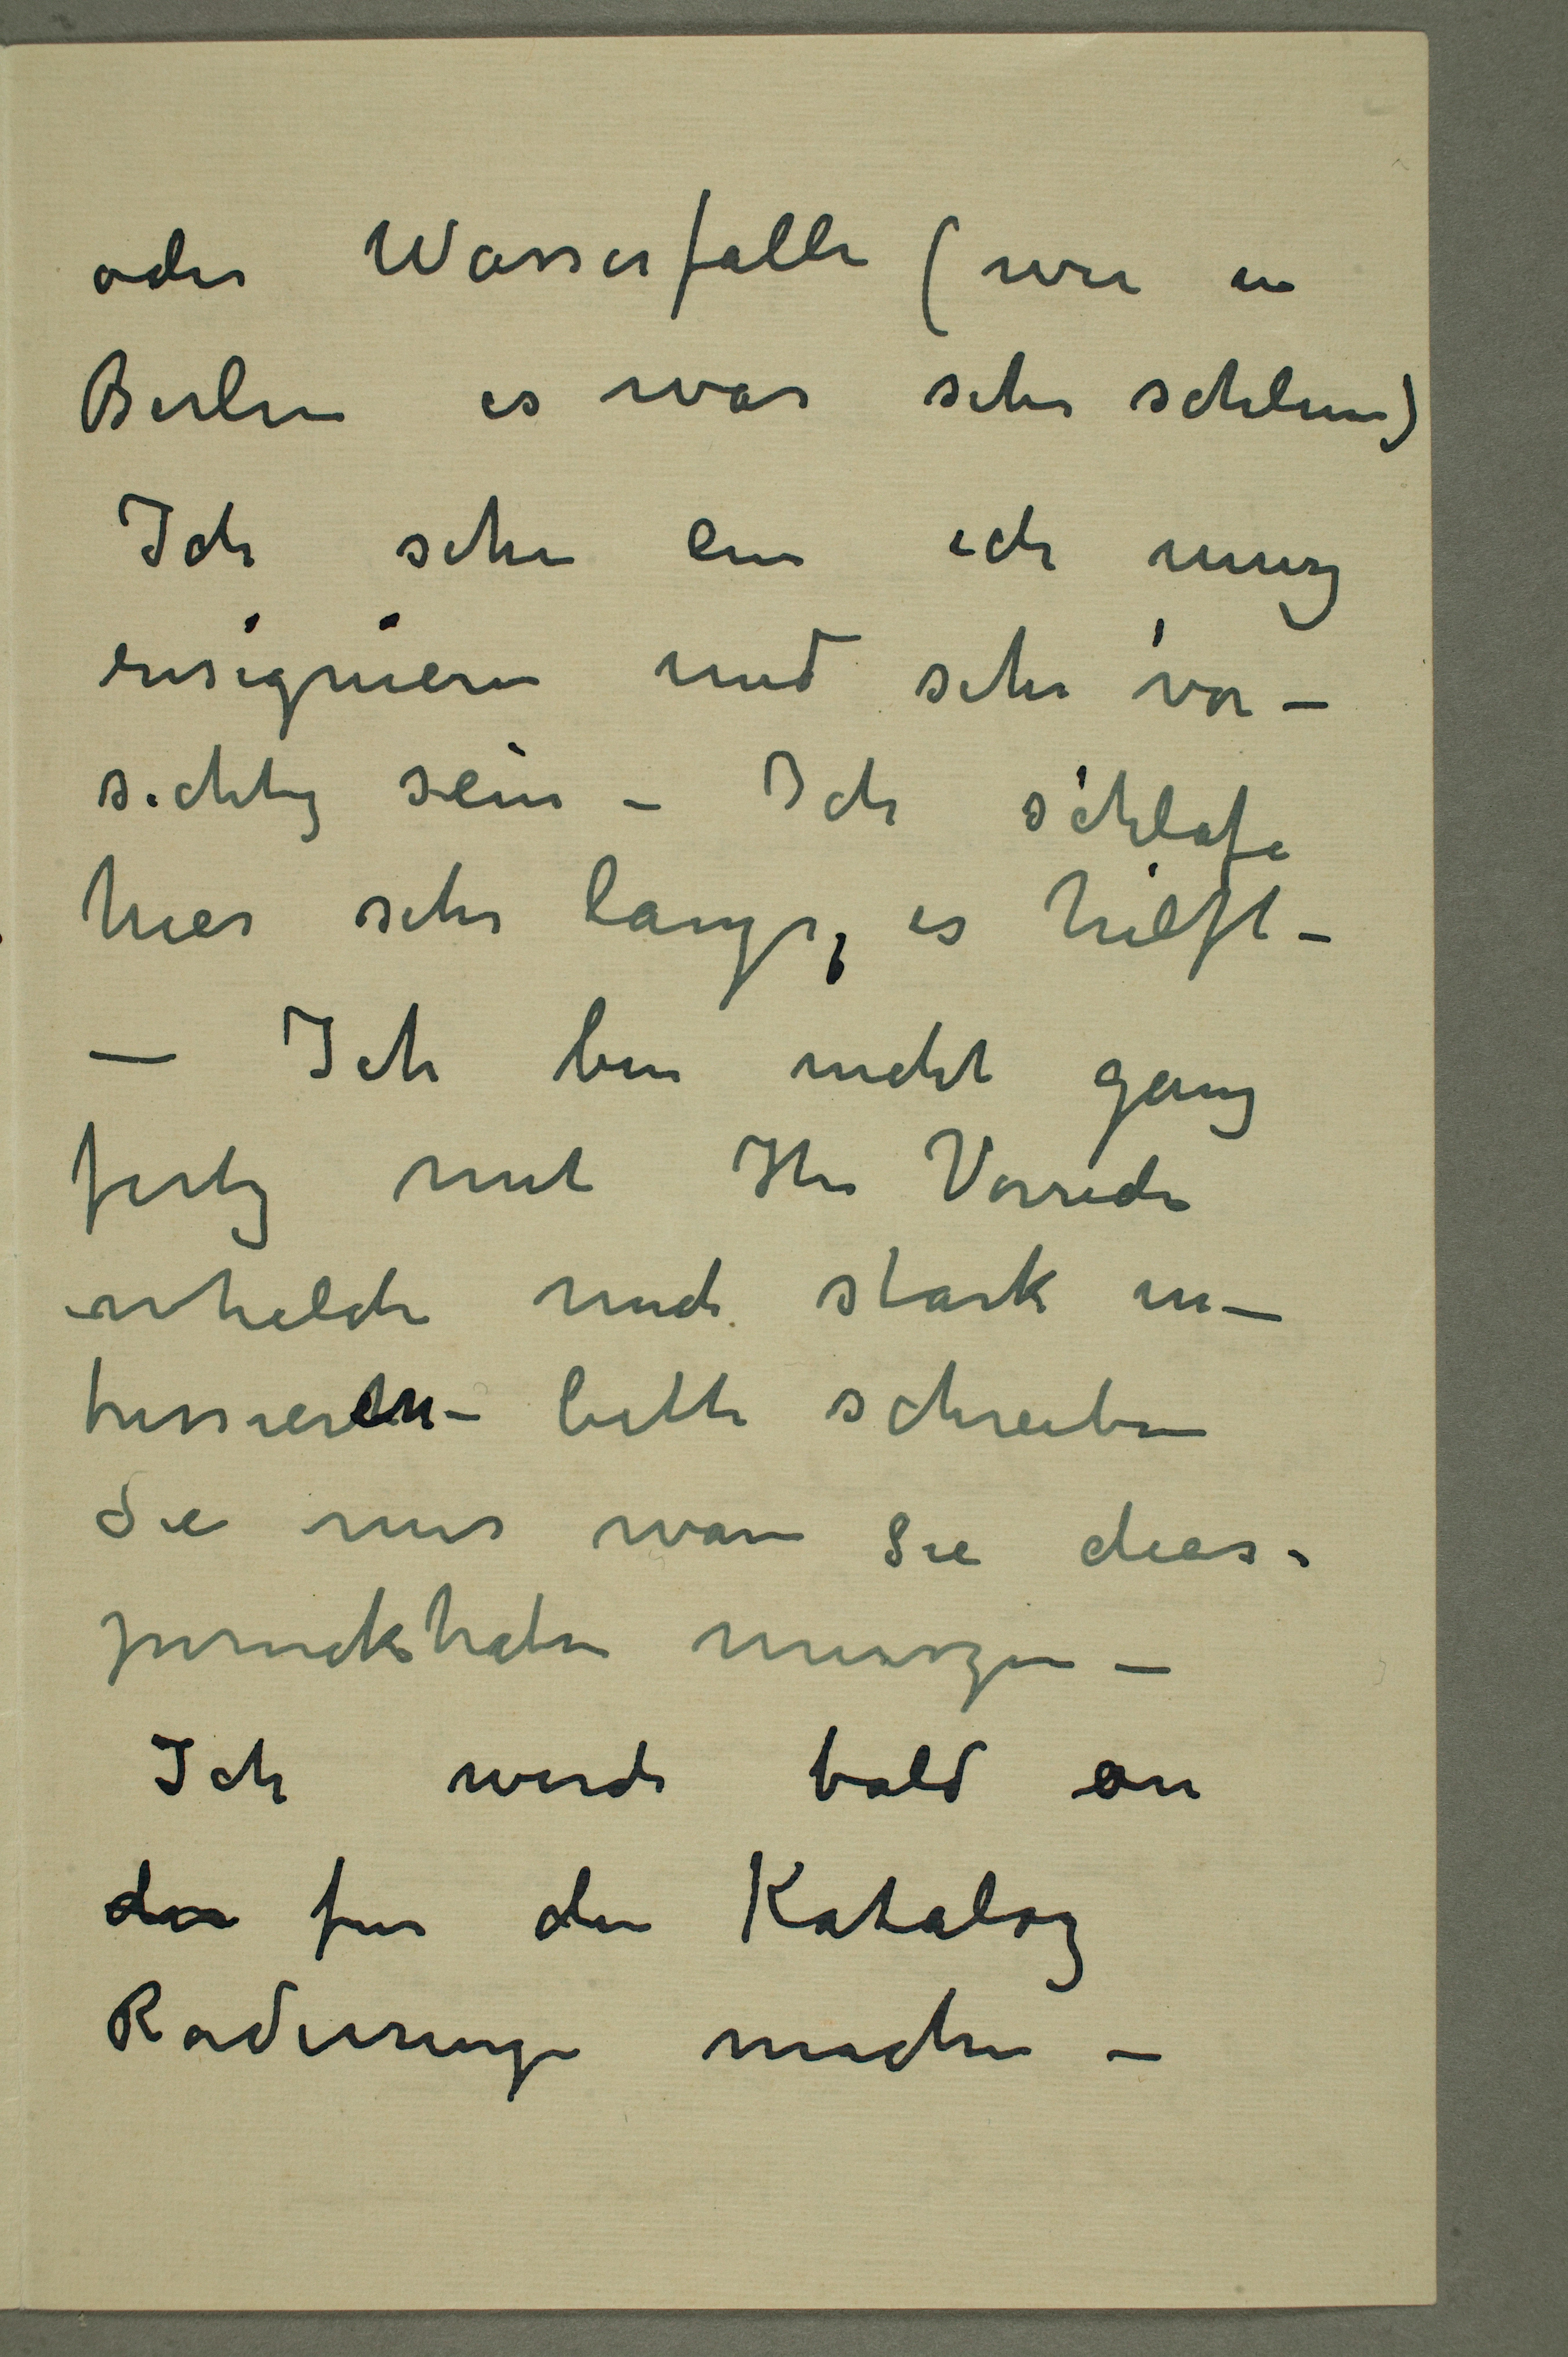 oder Wasserfalle (wie in
Berlin es war sehr schlim)
Ich sehe ein ich musz
resignieren und sehr vor–
sichtig sein – Ich schlafe
hier sehr lange, es hilft –
– Ich bin nicht ganz
fertig mit Ihr Vorrede
welche mich stark in–
tressieren – bitte schreiben
Sie mir wan Sie diese
zuruckhaben muszen –
Ich werde bald an
das fur den Katalog
Radierunge machen –